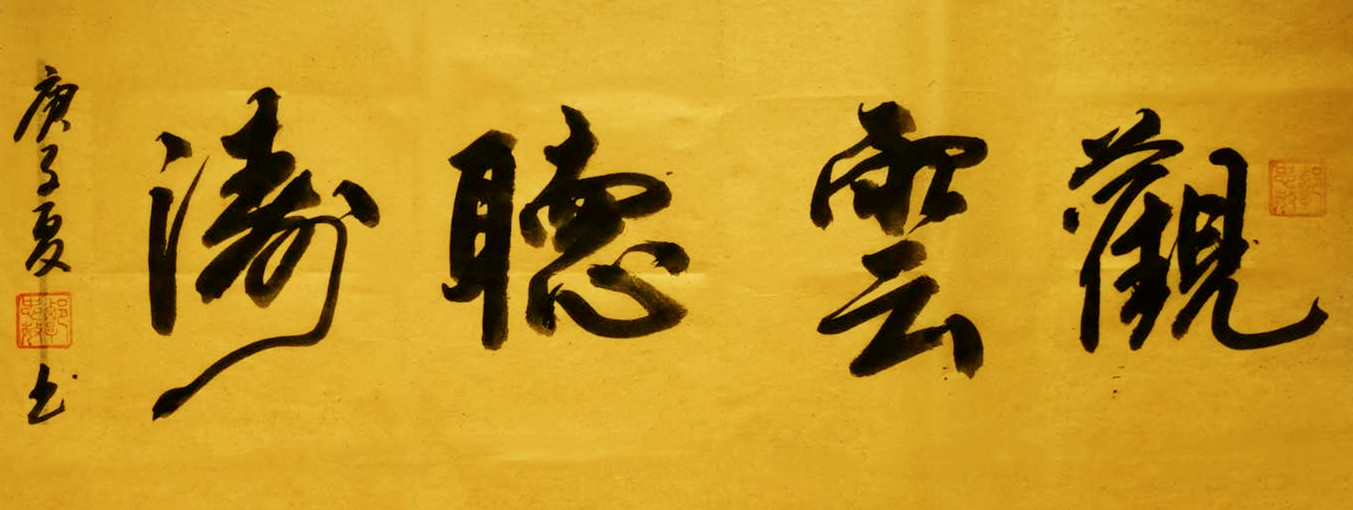 觀雲聽濤
庚子夏
书